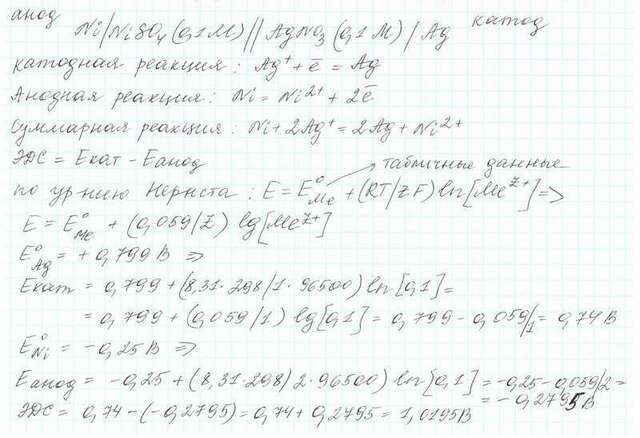 анод Ni/NiSO4 (0,1M)//AgNO3 (0,1M)/Ag катод
катодная реакция: Ag⁺ + ē = Ag
Анодная реакция: Ni = Ni²⁺ + 2ē
Суммарная реакция: Ni + 2Ag⁺ = 2Ag + Ni²⁺
ЭДС = Eкат - Eанод
табличные данные
по ур-нию Нернста: E = E°Me + (RT/ZF) ln[Me^Z+] =>
E = E°Me + (0,059/Z) lg[Me^Z+]
E°Ag = + 0,799 В =>
Eкат = 0,799 + (8,31·298/1·96500) ln[0,1] =
= 0,799 + (0,059/1) lg[0,1] = 0,799 - 0,059/1 = 0,74 В
E°Ni = -0,25 В =>
Eанод = -0,25 + (8,31·298)/2·96500) ln[0,1] = -0,25 - 0,059/2 =
= -0,2795 В
ЭДС = 0,74 - (-0,2795) = 0,74 + 0,2795 = 1,0195 В